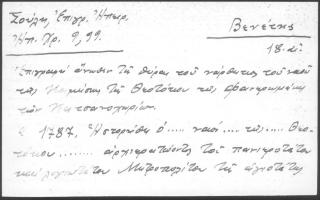 Σούλη, Ἐπιγρ. Ἠπειρ.
Ἠπ. Χρ. 9, 99.
Βενέτης
18. αἰ.
Ἐπιγραφὴ ἄνωθεν τῆς θύρας τοῦ νάρθηκος τοῦ ναοῦ
τῆς Κοιμήσεως τῆς Θεοτόκου τῆς
τῶν Κατσανοχωρίων.
1787. Ἱστορήθη ὁ ..... ναός ..... τῆς ..... Θεο-
τόκου ........ ἀρχιερατεύοντος τοῦ πανιερωτάτου
καὶ λογιωτάτου Μητροπολίτου τῆς ἁγιωτάτης